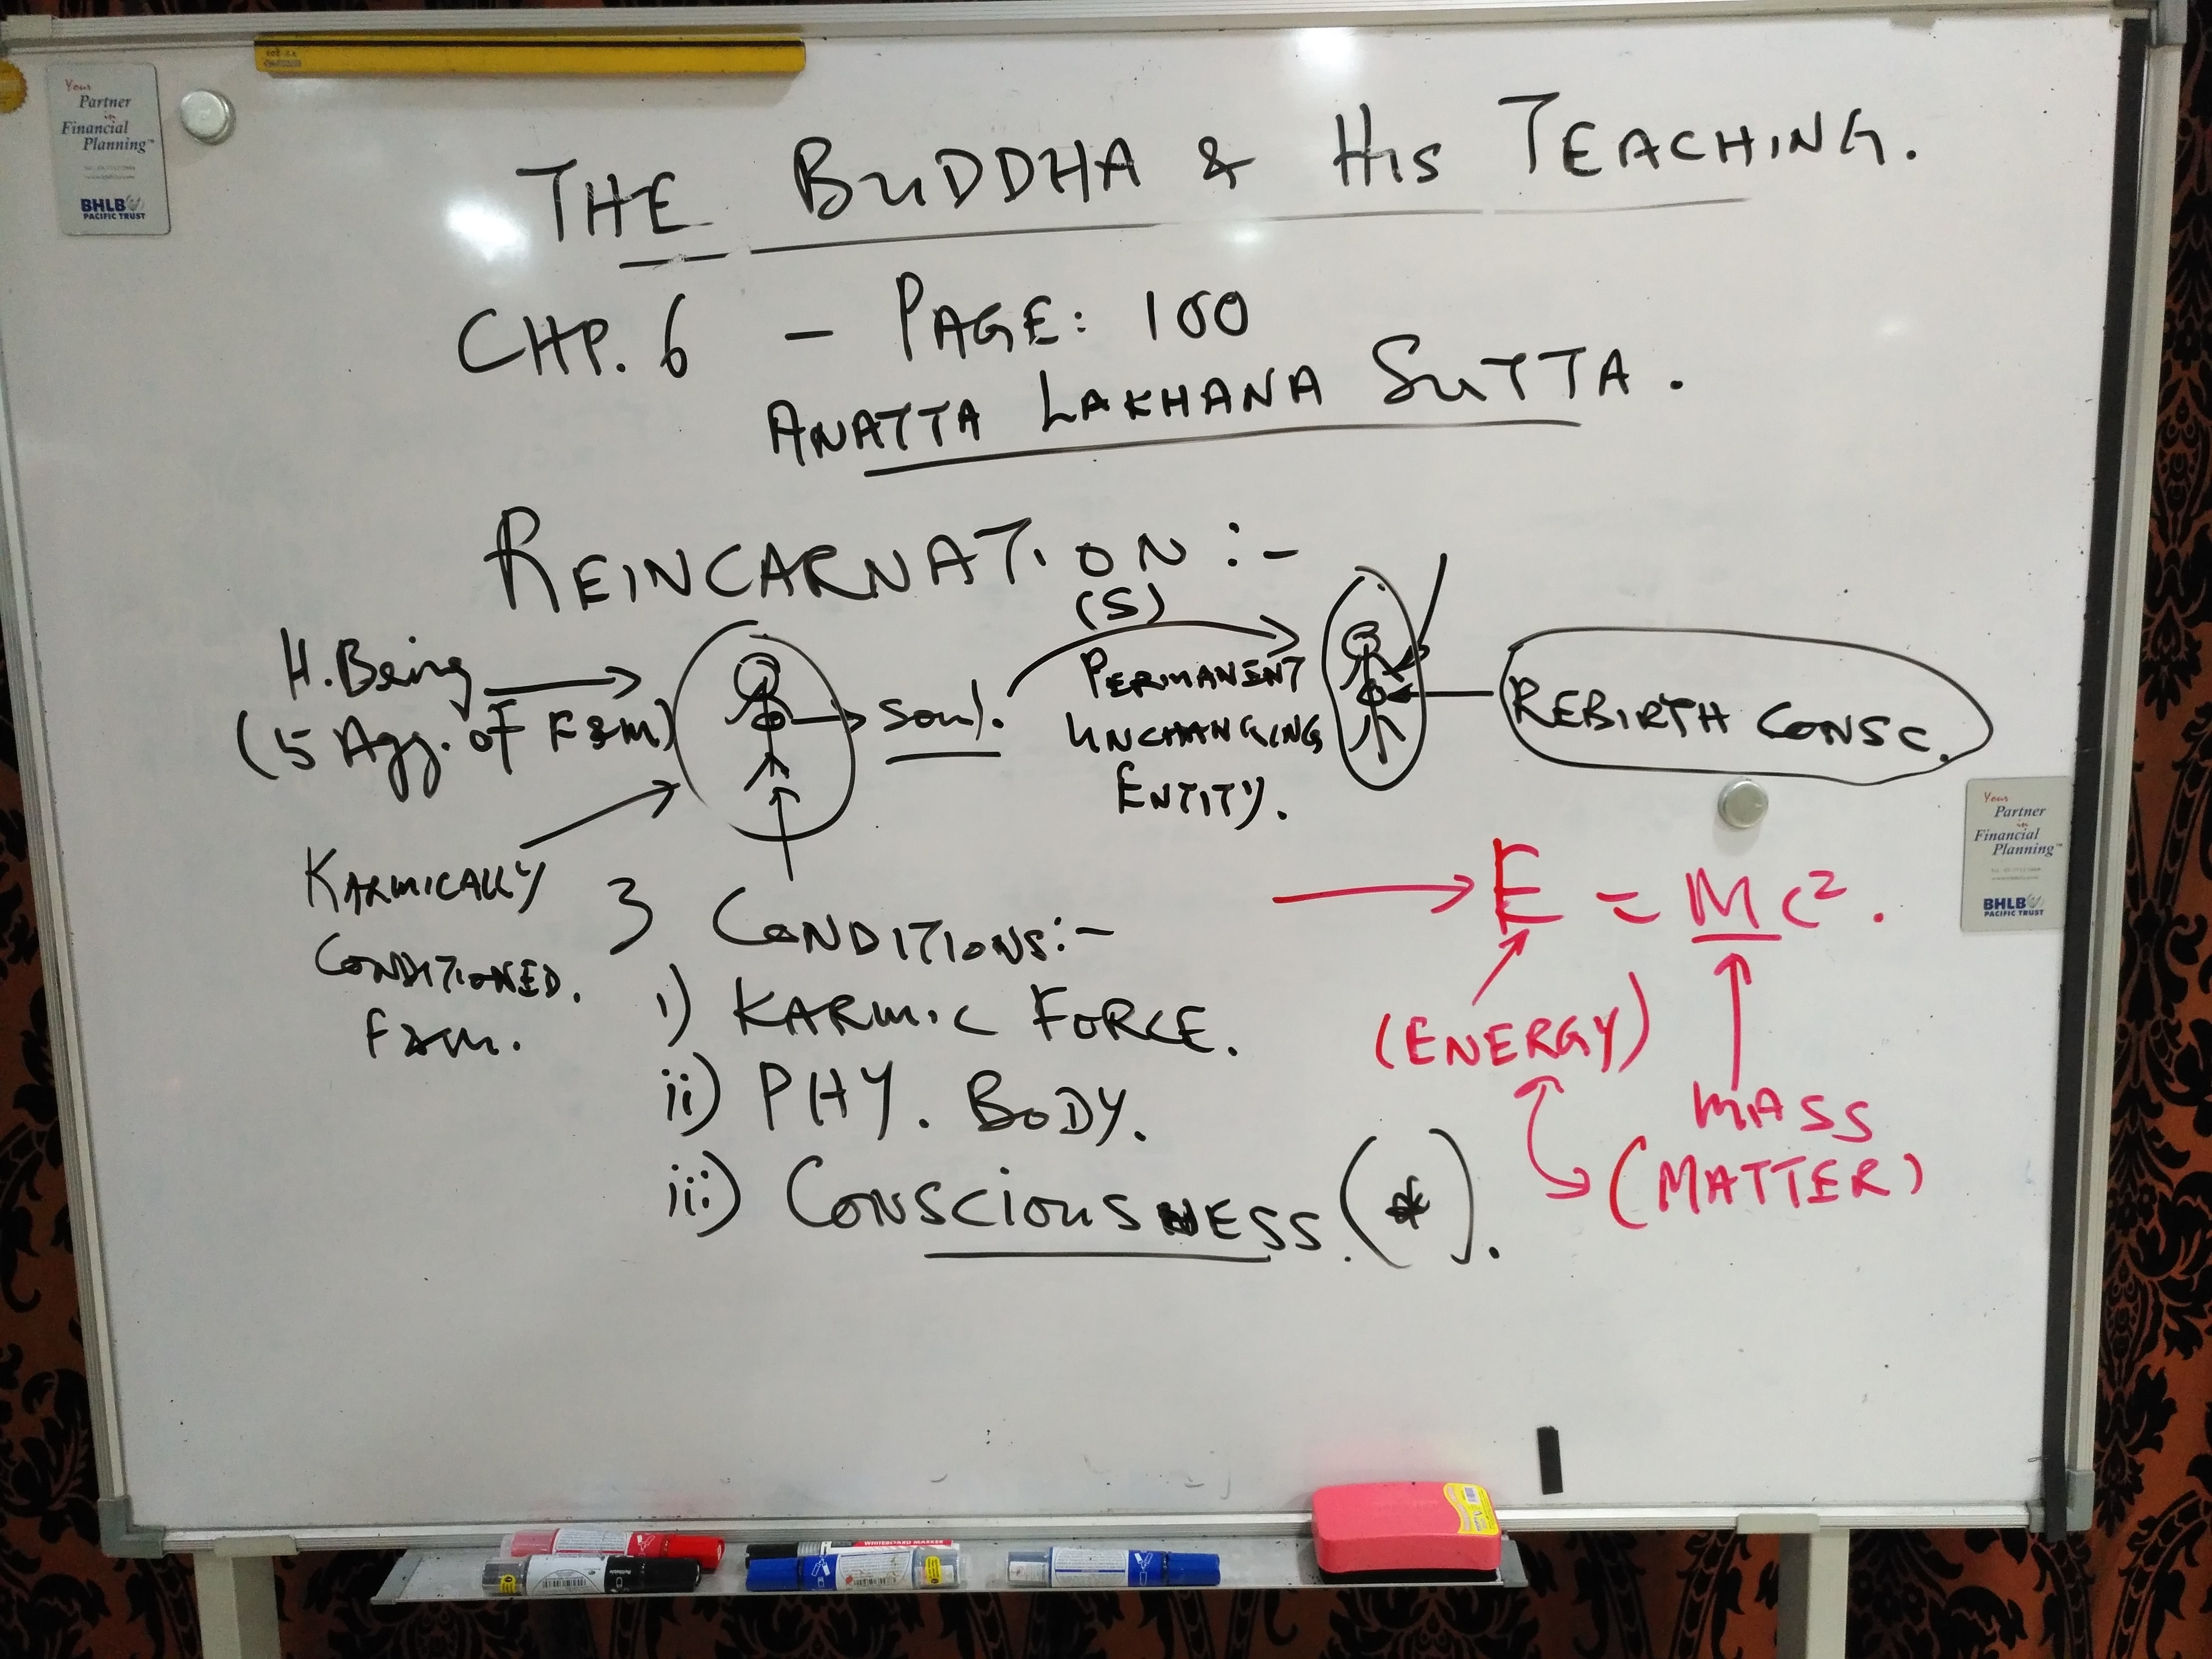 Your
Partner
in
Financial
Planning™
BHLB
PACIFIC TRUST
THE BUDDHA & HIS TEACHING.
CHP. 6 - PAGE: 100
ANATTA LAKHANA SUTTA.
REINCARNATION :-
(S)
H. Being
(5 Agg. of F&M)
soul.
PERMANENT
UNCHANGING
ENTITY.
REBIRTH CONSC.
KARMICALLY
CONDITIONED.
F&M.
3 CONDITIONS:-
i) KARMIC FORCE.
ii) PHY. BODY.
iii) CONSCIOUSNESS. (*).
E = MC².
(ENERGY)
MASS
(MATTER)
Your
Partner
in
Financial
Planning™
BHLB
PACIFIC TRUST
WHITEBOARD MARKER